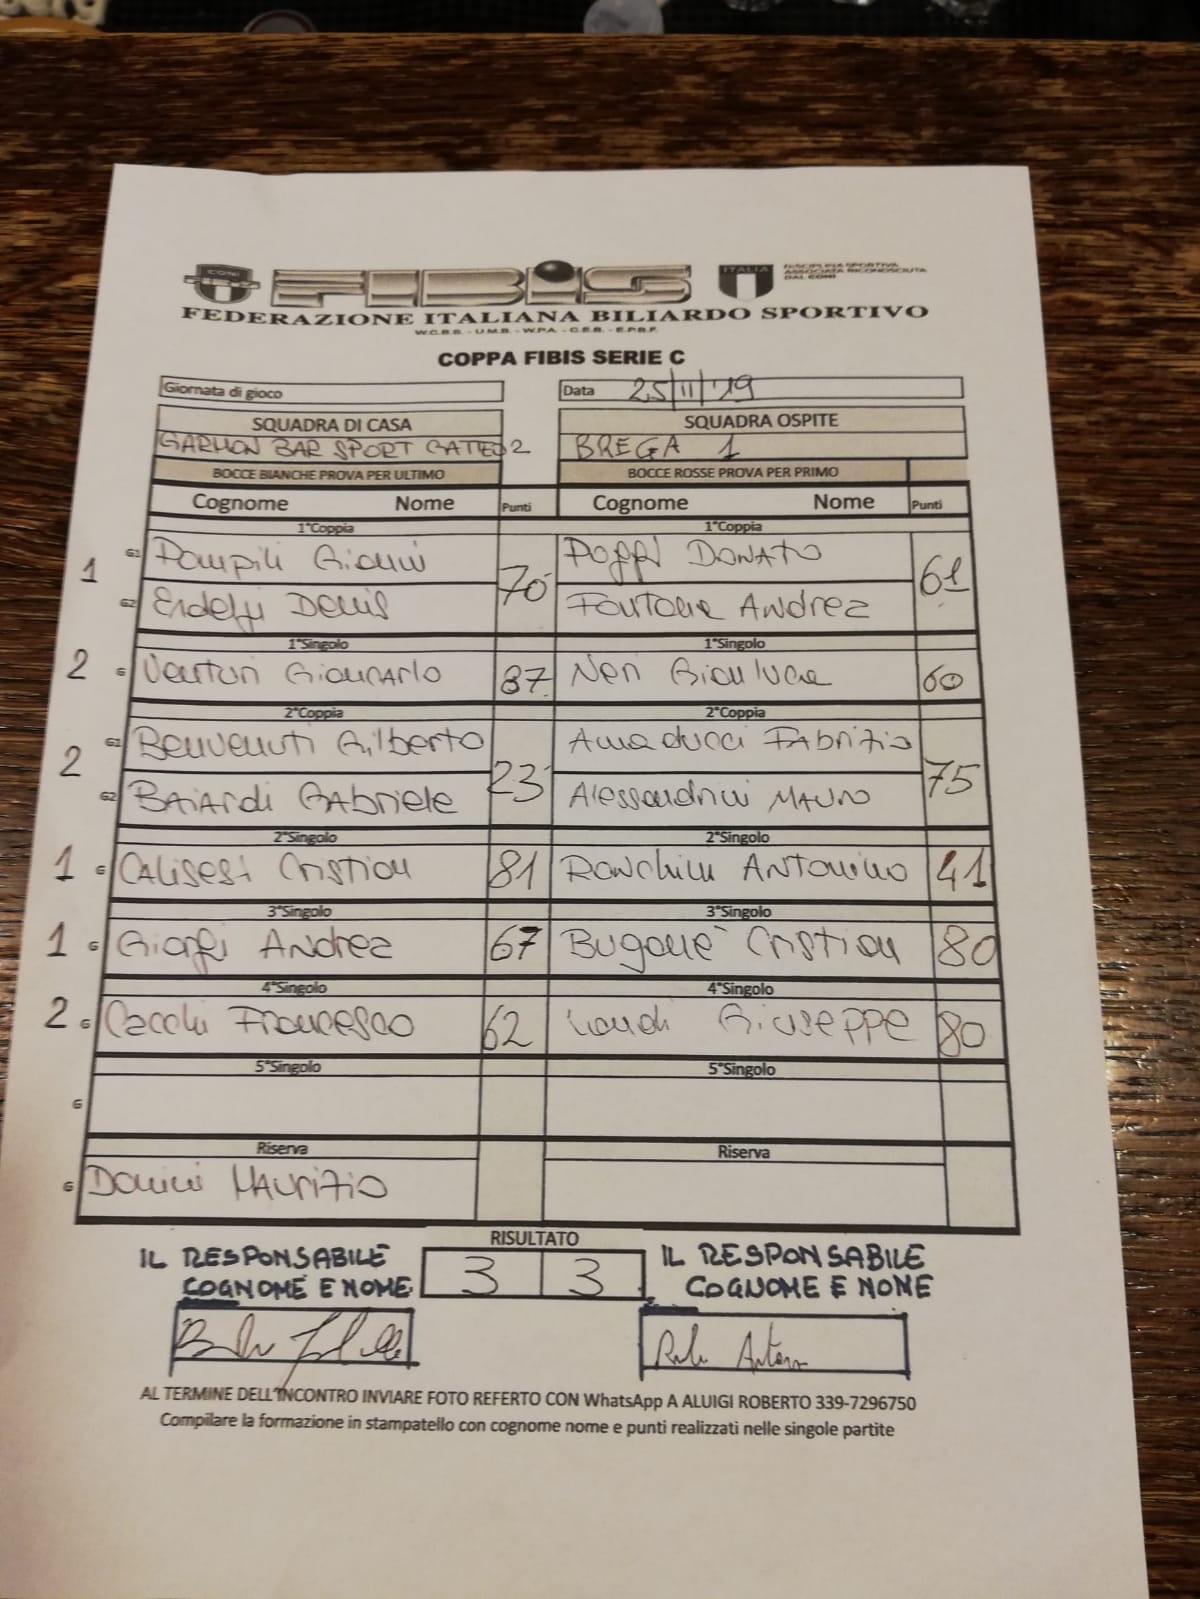 CONI
FIBIS
ITALIA
DISCIPLINA SPORTIVA
ASSOCIATA RICONOSCIUTA
DAL CONI
FEDERAZIONE ITALIANA BILIARDO SPORTIVO
W.C.B.S. - U.M.B. - W.P.A. - C.E.B. - E.P.B.F.
COPPA FIBIS SERIE C
Giornata di gioco Data 25/11/'19
SQUADRA DI CASA SQUADRA OSPITE
GARMON BAR SPORT GATTEO 2 BREGA 1
BOCCE BIANCHE PROVA PER ULTIMO BOCCE ROSSE PROVA PER PRIMO
Cognome Nome Punti Cognome Nome Punti
1°Coppia 1°Coppia
1 G1 Pompili Gianni 70 Poggi DONATO 61
G2 Erdeffi Denis Fontana Andrea
1°Singolo 1°Singolo
2 G Venturi Giancarlo 87 Neri Gianluca 60
2°Coppia 2°Coppia
2 G1 Benvenuti Gilberto 23 Amaducci FAbrizio 75
G2 BAiARdi GAbriele Alessandrini MAURO
2°Singolo 2°Singolo
1 G CALISESI Cristian 81 Ronchini ANTONINO 41
3°Singolo 3°Singolo
1 G Giorgi Andrea 67 Bugane' Cristian 80
4°Singolo 4°Singolo
2 G Cecchi Francesco 62 Landi GIUSEPPE 80
5°Singolo 5°Singolo
G
Riserva Riserva
G Donini MAurizio
RISULTATO
IL RESPONSABILE 3 3 IL RESPONSABILE
COGNOME E NOME COGNOME E NOME
AL TERMINE DELL'INCONTRO INVIARE FOTO REFERTO CON WhatsApp A ALUIGI ROBERTO 339-7296750
Compilare la formazione in stampatello con cognome nome e punti realizzati nelle singole partite